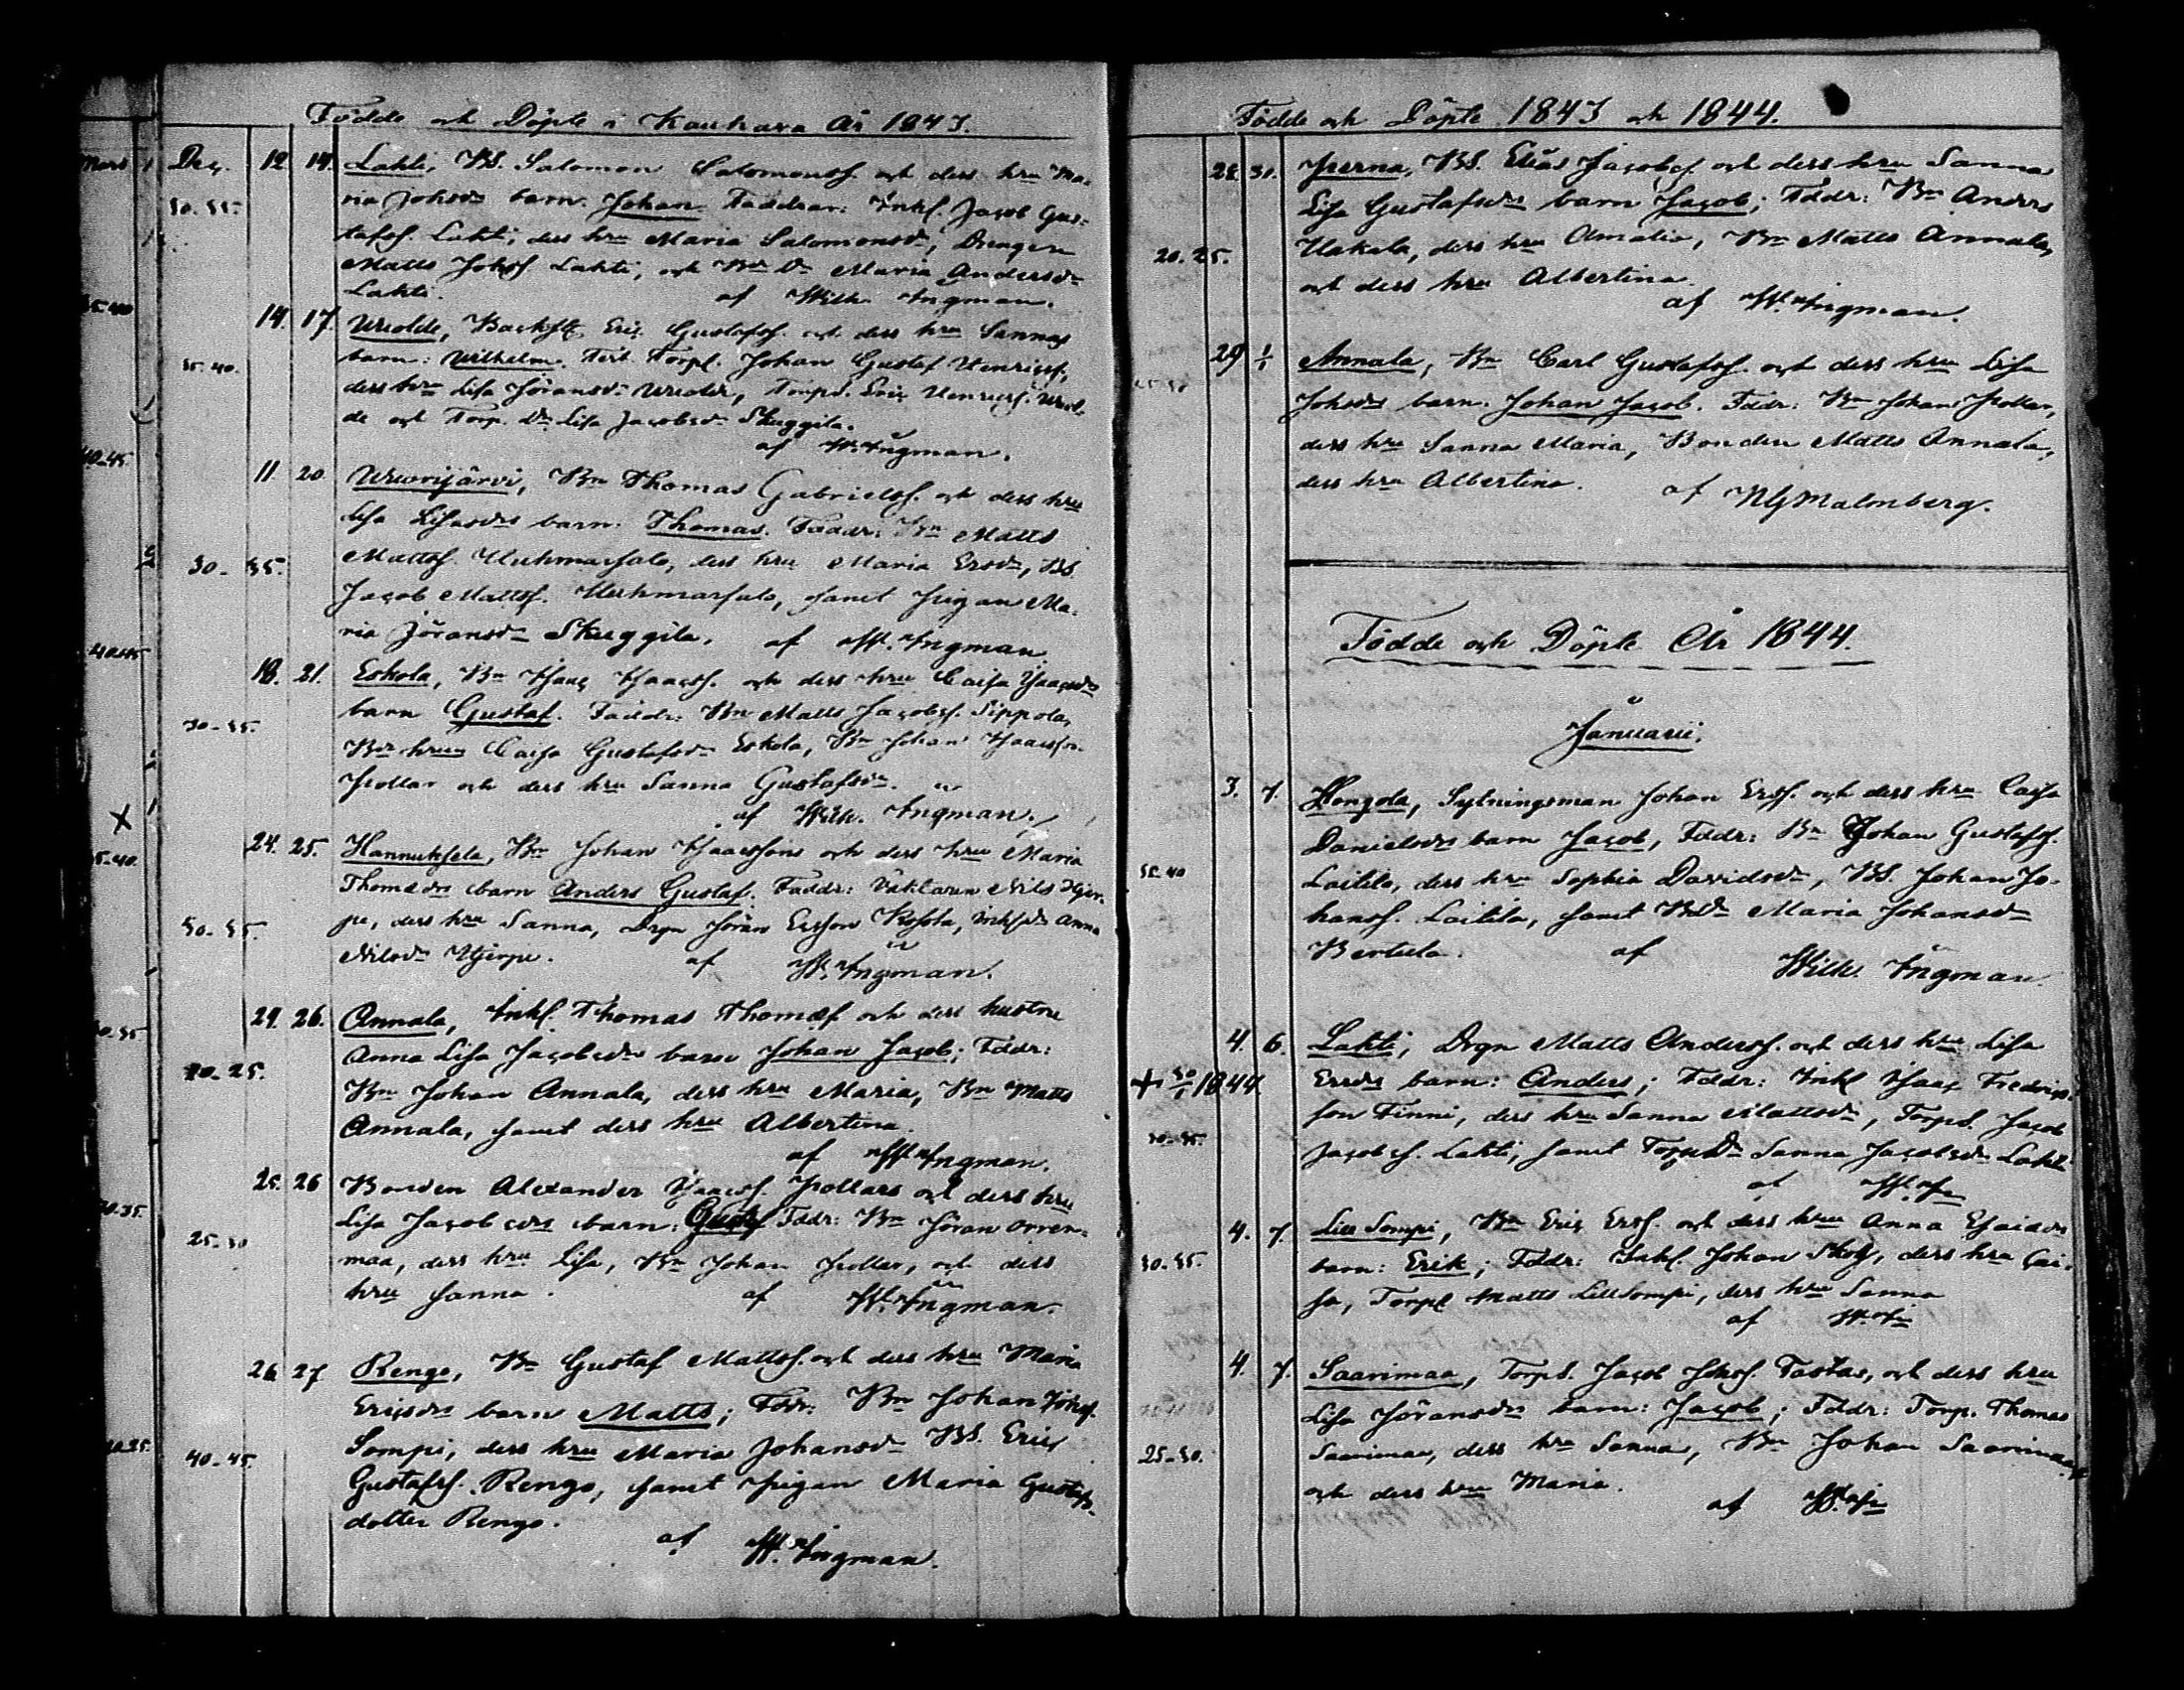 Födde och Döpte i Kauhava År 1843.
Dec. 12. 14. Lahti, BS. Salomon Salomonsf. och dess hru Ma-
30-35. ria Johsdrs barn: Johan Faddrar: Inhs. Jacob Gus-
tafsf. Lahti, dess hru Maria Salomonsdr, Drengen
Matts Johsf Lahti, och Bdr Maria Andersdr
Lahti. af Wilh. Ingman.
14. 17. Backst. Eric Gustafsf. och dess hru Sannas
35-40. barn: Wilhelm. Test. Torp. Johan Gustaf Henricsf,
dess hru Lisa Jöransdr Torpd. Eric Henricsf.
de och Torp. Dr Lisa Jacobsdr Skuggila.
af W. Ingman.
11. 20. Bn Thomas Gabrielsf. och dess hru
Lisa barn: Thomas. Faddr: Bn Matts
30-35. Mattsf. Huhmarsalo, dess hru Maria Ersdr, BS
Jacob Mattsf. Huhmarsalo, samt Pigan Ma-
ria Jöransdr Skuggila. af W. Ingman.
18. 21. Eskola, Bn Isaac Isaacsf. och dess hru Caisa Isaacsdrs
barn Gustaf. Faddr: Bn Matts Jacobsf. Sippola,
30-35. Bdr hrun Caisa Gustafsdr Eskola, Bn Johan Isaacsson
Pollar och dess hru Sanna Gustafsdr.
af Wilh. Ingman.
24. 25. Hannuksela, Bn Johan Isaacssons och dess hru Maria
Thomædrs barn Anders Gustaf. Faddr: Väktaren Nils Hjer-
50-55. pe, dess hru Sanna, Drgn Jöran Ersson Inhsdr Anna
Nilsdr Hjerpe. af W. Ingman.
24. 26. Annala, Inhs. Thomas Thomæsf och dess hustru
Anna Lisa Jacobsdrs barn Johan Jacob; Fddr:
20-25. Bn Johan Annala, dess hru Maria, Bn Matts
Annala, samt dess hru Albertina.
af W. Ingman.
25. 26 Bonden Alexander Isaacsf. Pollars och dess hru
Lisa Jacobsdrs barn: Gustaf Fddr: Bn Jöran Orren-
25-30 maa, dess hru Lisa, Bn Johan Pollar, och dess
hru Sanna. af W. Ingman.
26 27 Rengo, Bn Gustaf Mattsf. och dess hru Maria
Ericsdrs barn Matts; Fddr: Bn Johan Johsf.
Sompi, dess hru Maria Johansdr BS. Eric
40-45. Gustafsf. Rengo, samt Pigan Maria Gustafs-
dotter Rengo.
af W. Ingman.
Födde och Döpte 1843 och 1844.
28. 31. Perna, BS. Elias Jacobsf och dess hru Sanna
Lisa Gustafsdrs barn Jacob; Fddr: Bn Anders
20-25. Hakala, dess hru Amalia, Bn Matts Annala,
och dess hru Albertina.
af W. Ingman.
29 1/1 Annala, Bn Carl Gustafsf. och dess hru Lisa
Johsdrs barn: Johan Jacob. Fddr: Bn Johan Pollar,
dess hru Sanna Maria, Bonden Matts Annala,
dess hru Albertina. af N G Malmberg.
Födde och Döpte År 1844.
Januarii.
3. 7. Hongola, Sytningsman Johan Ersf. och dess hru Caisa
Danielsdrs barn Jacob, Fddr: Bn Johan Gustafsf.
35-40 Laitila, dess hru Sophia Davidsdr, BS. Johan Jo-
hansf. Laitila, samt BDr Maria Johansdr
Bertula. af Wilh. Ingman.
4. 6. Lahti, Drgn Matts Andersf. och dess hru Lisa
+ 30/1 1844. Ersdrs barn: Anders; Fddr: Inhs Isaac Fredrics-
son Finni, dess hru Sanna Mattsdr, Torpd. Jacob
30-35. Jacobsf. Lahti, samt Dr Sanna Jacobsdr Lahti
af
4. 7. Lill Sompi, Bn Eric Ersf. och dess hru Anna Esaiædrs
30-35. barn: Erik; Fddr: Inhs. Johan Skog, dess hru Cai-
sa, Torp Matts LillSompi, dess hru Sanna
af
4. 7. Saarimaa, Torpd. Jacob Johsf. Tastas, och dess hru
Lisa Jöransdrs barn: Jacob; Fddr: Torp. Thomas
25-30. Saarimaa, dess hru Sanna, Bn Johan Saarimaa
och dess hru Maria. af